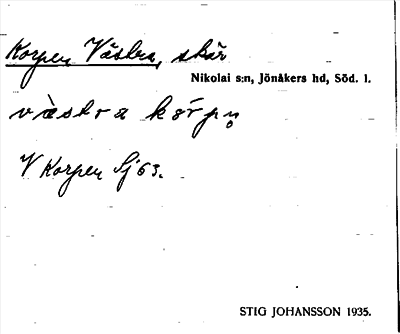 Korpen Västra, skär
Nikolai s:n, Jönåkers hd, Söd. l.
vàstra kórpn̥
V Korpen Sj 63.
STIG JOHANSSON 1935.